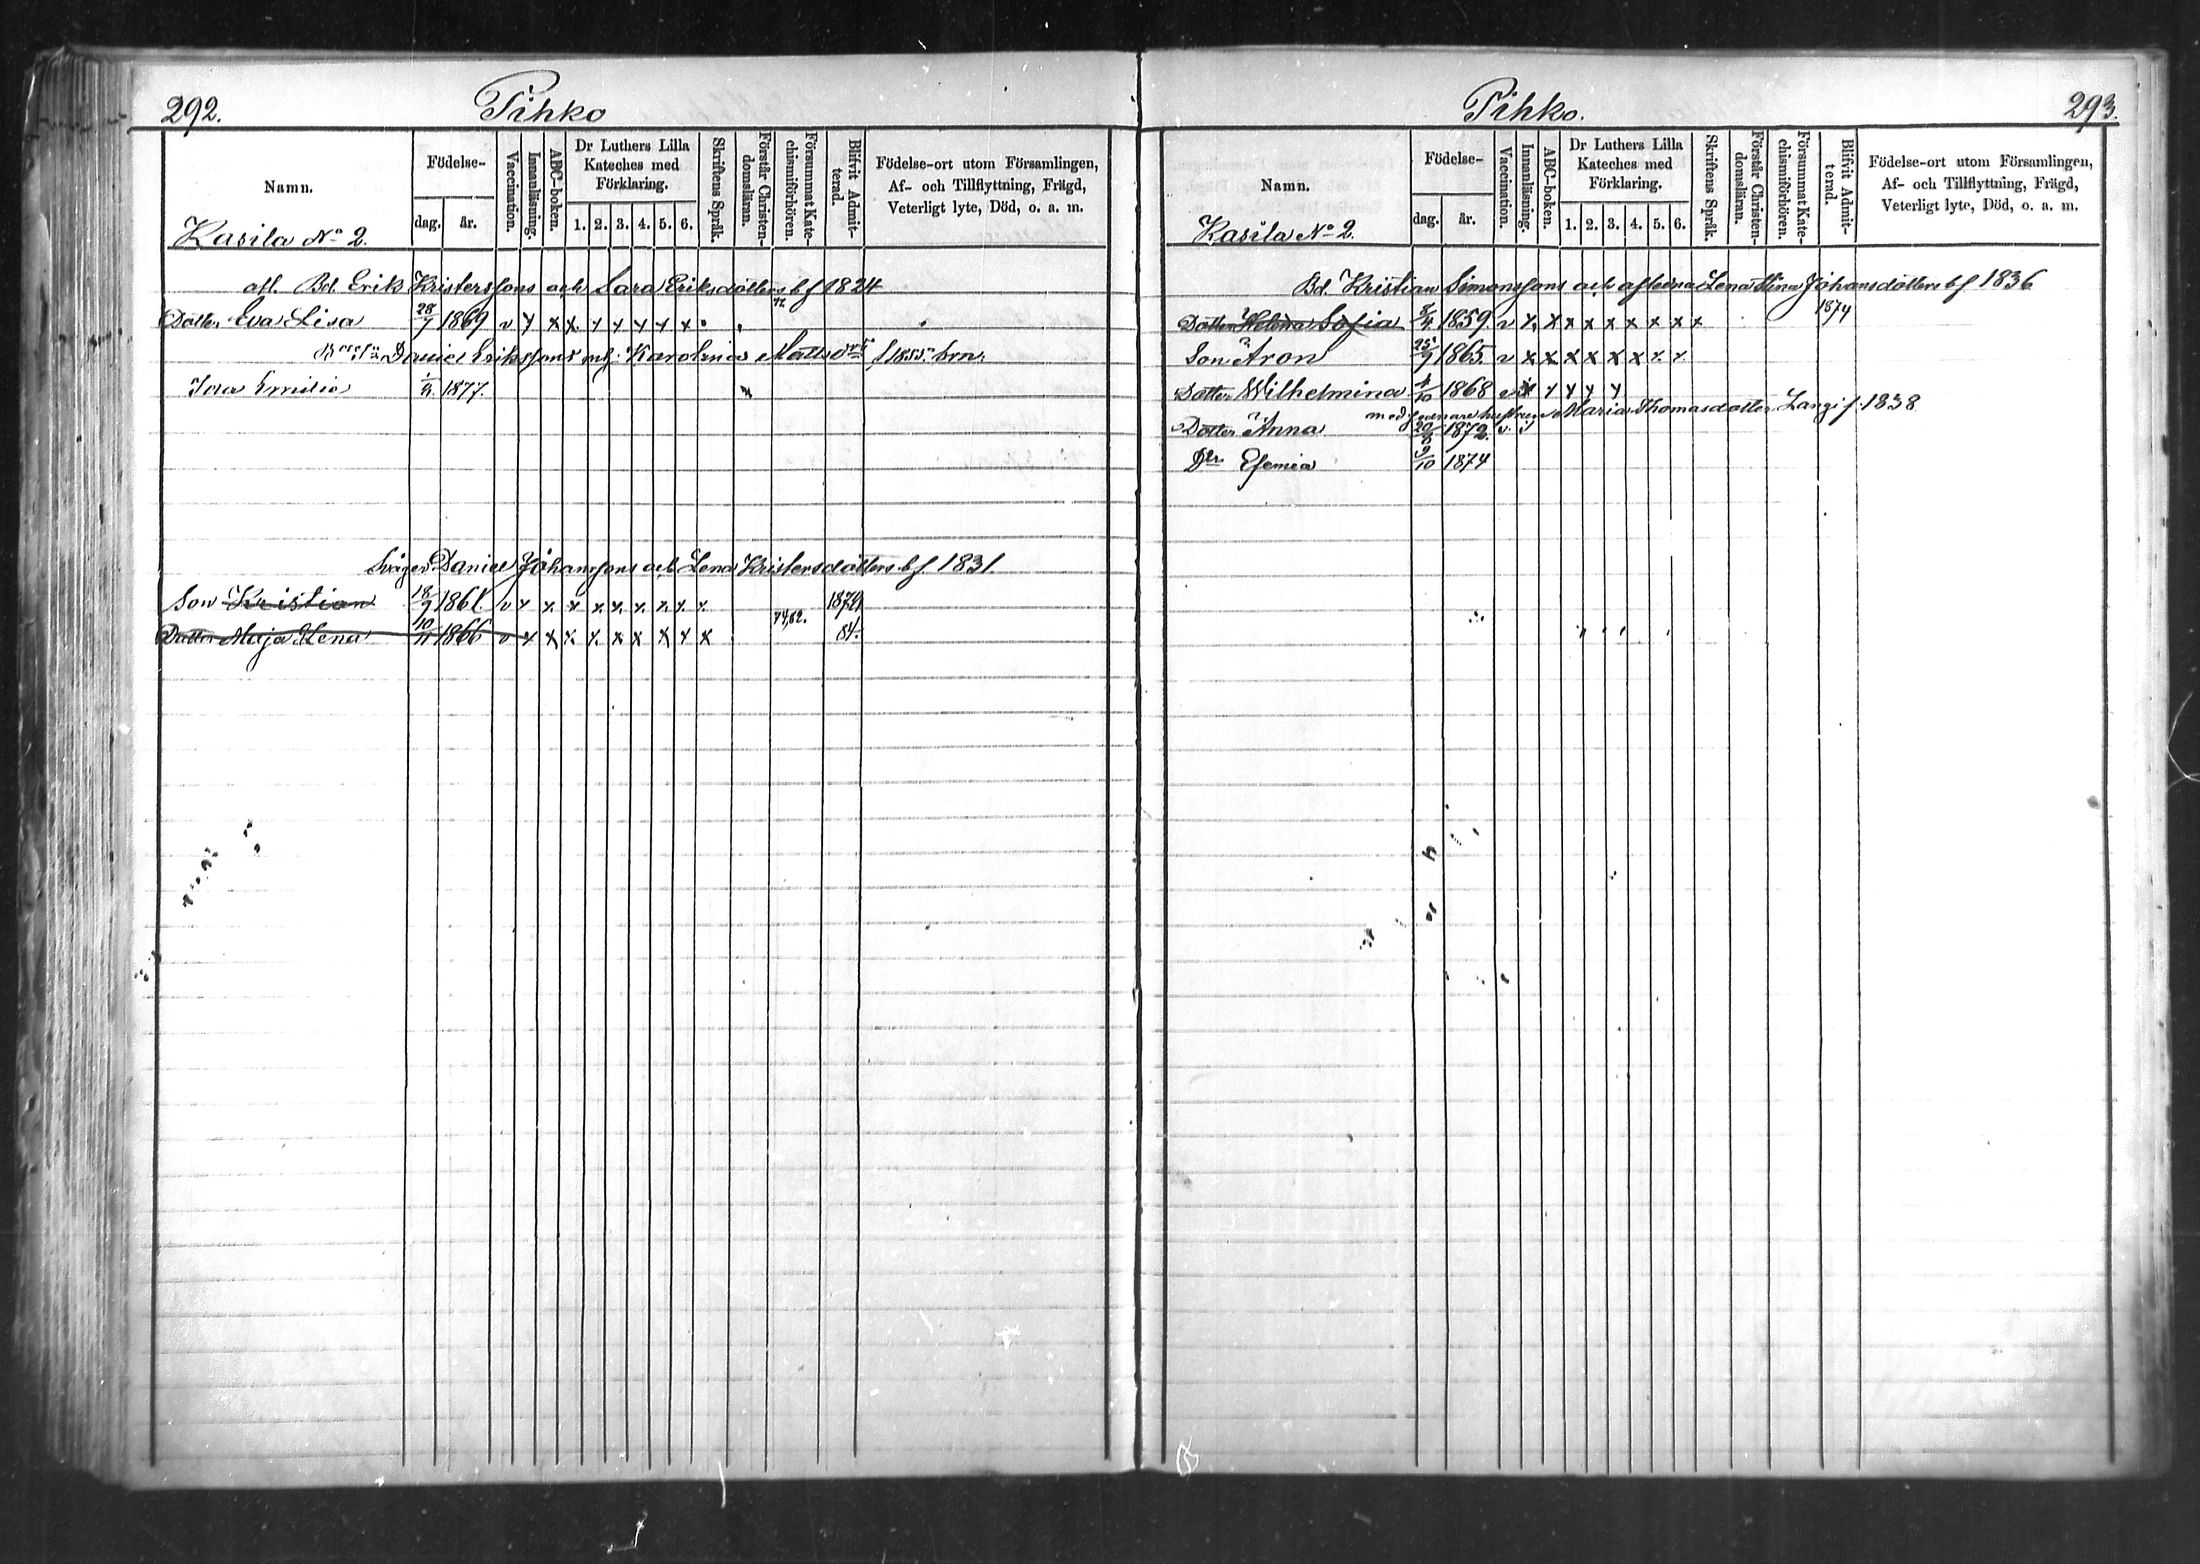 292.
Pihko
Namn.
Födelse-
dag.
år.
Vaccination.
Innanläsning.
ABC-boken.
Dr Luthers Lilla
Kateches med
Förklaring.
1. 2. 3. 4. 5. 6.
Skriftens Språk.
Förstår Christen-
domsläran.
Försummat Kate-
chismiförhören.
Blifvit Admit-
terad.
Födelse-ort utom Församlingen,
Af- och Tillflyttning, Frägd,
Veterligt lyte, Död, o. a. m.
Kasila No 2.
afl. Bd. Erik Kristerssons och Sara Eriksdotters bf 1824
Dotter Eva Lisa 28/7 1869 v y x x x y x y x x
Daniel Erikssons och Karolina Matts f 1855 brn:
Ida Emilia 1/4 1877.
Svåger Daniel Johanssons och Lena Kristersdotters bf. 1831
Son Kristian 18/9 1861. v x x x x x x x x x 1879
Dotter Maja Lena 10/11 1866 v x x x x x x x x x 74,82. 84.
Pihko.
293.
Namn.
Födelse-
dag.
år.
Vaccination.
Innanläsning.
ABC-boken.
Dr Luthers Lilla
Kateches med
Förklaring.
1. 2. 3. 4. 5. 6.
Skriftens Språk.
Förstår Christen-
domsläran.
Försummat Kate-
chismiförhören.
Blifvit Admit-
terad.
Födelse-ort utom Församlingen,
Af- och Tillflyttning, Frägd,
Veterligt lyte, Död, o. a. m.
Kasila No 2.
Bd. Kristian Simonssons och aflidna Lena Stina Johansdotters bf 1836
Dotter Helena Sofia 8/4 1859. v x x x x x x x x x 1874
Son Aron 25/9 1865. v x x x x x x x x
Dotter Wilhelmina 4/10 1868 v x y y y y
med senare hustrun Maria Thomasdotter Langi f. 1838
Dotter Anna 20/8 1872. v.
Dtr Efemia 9/10 1874